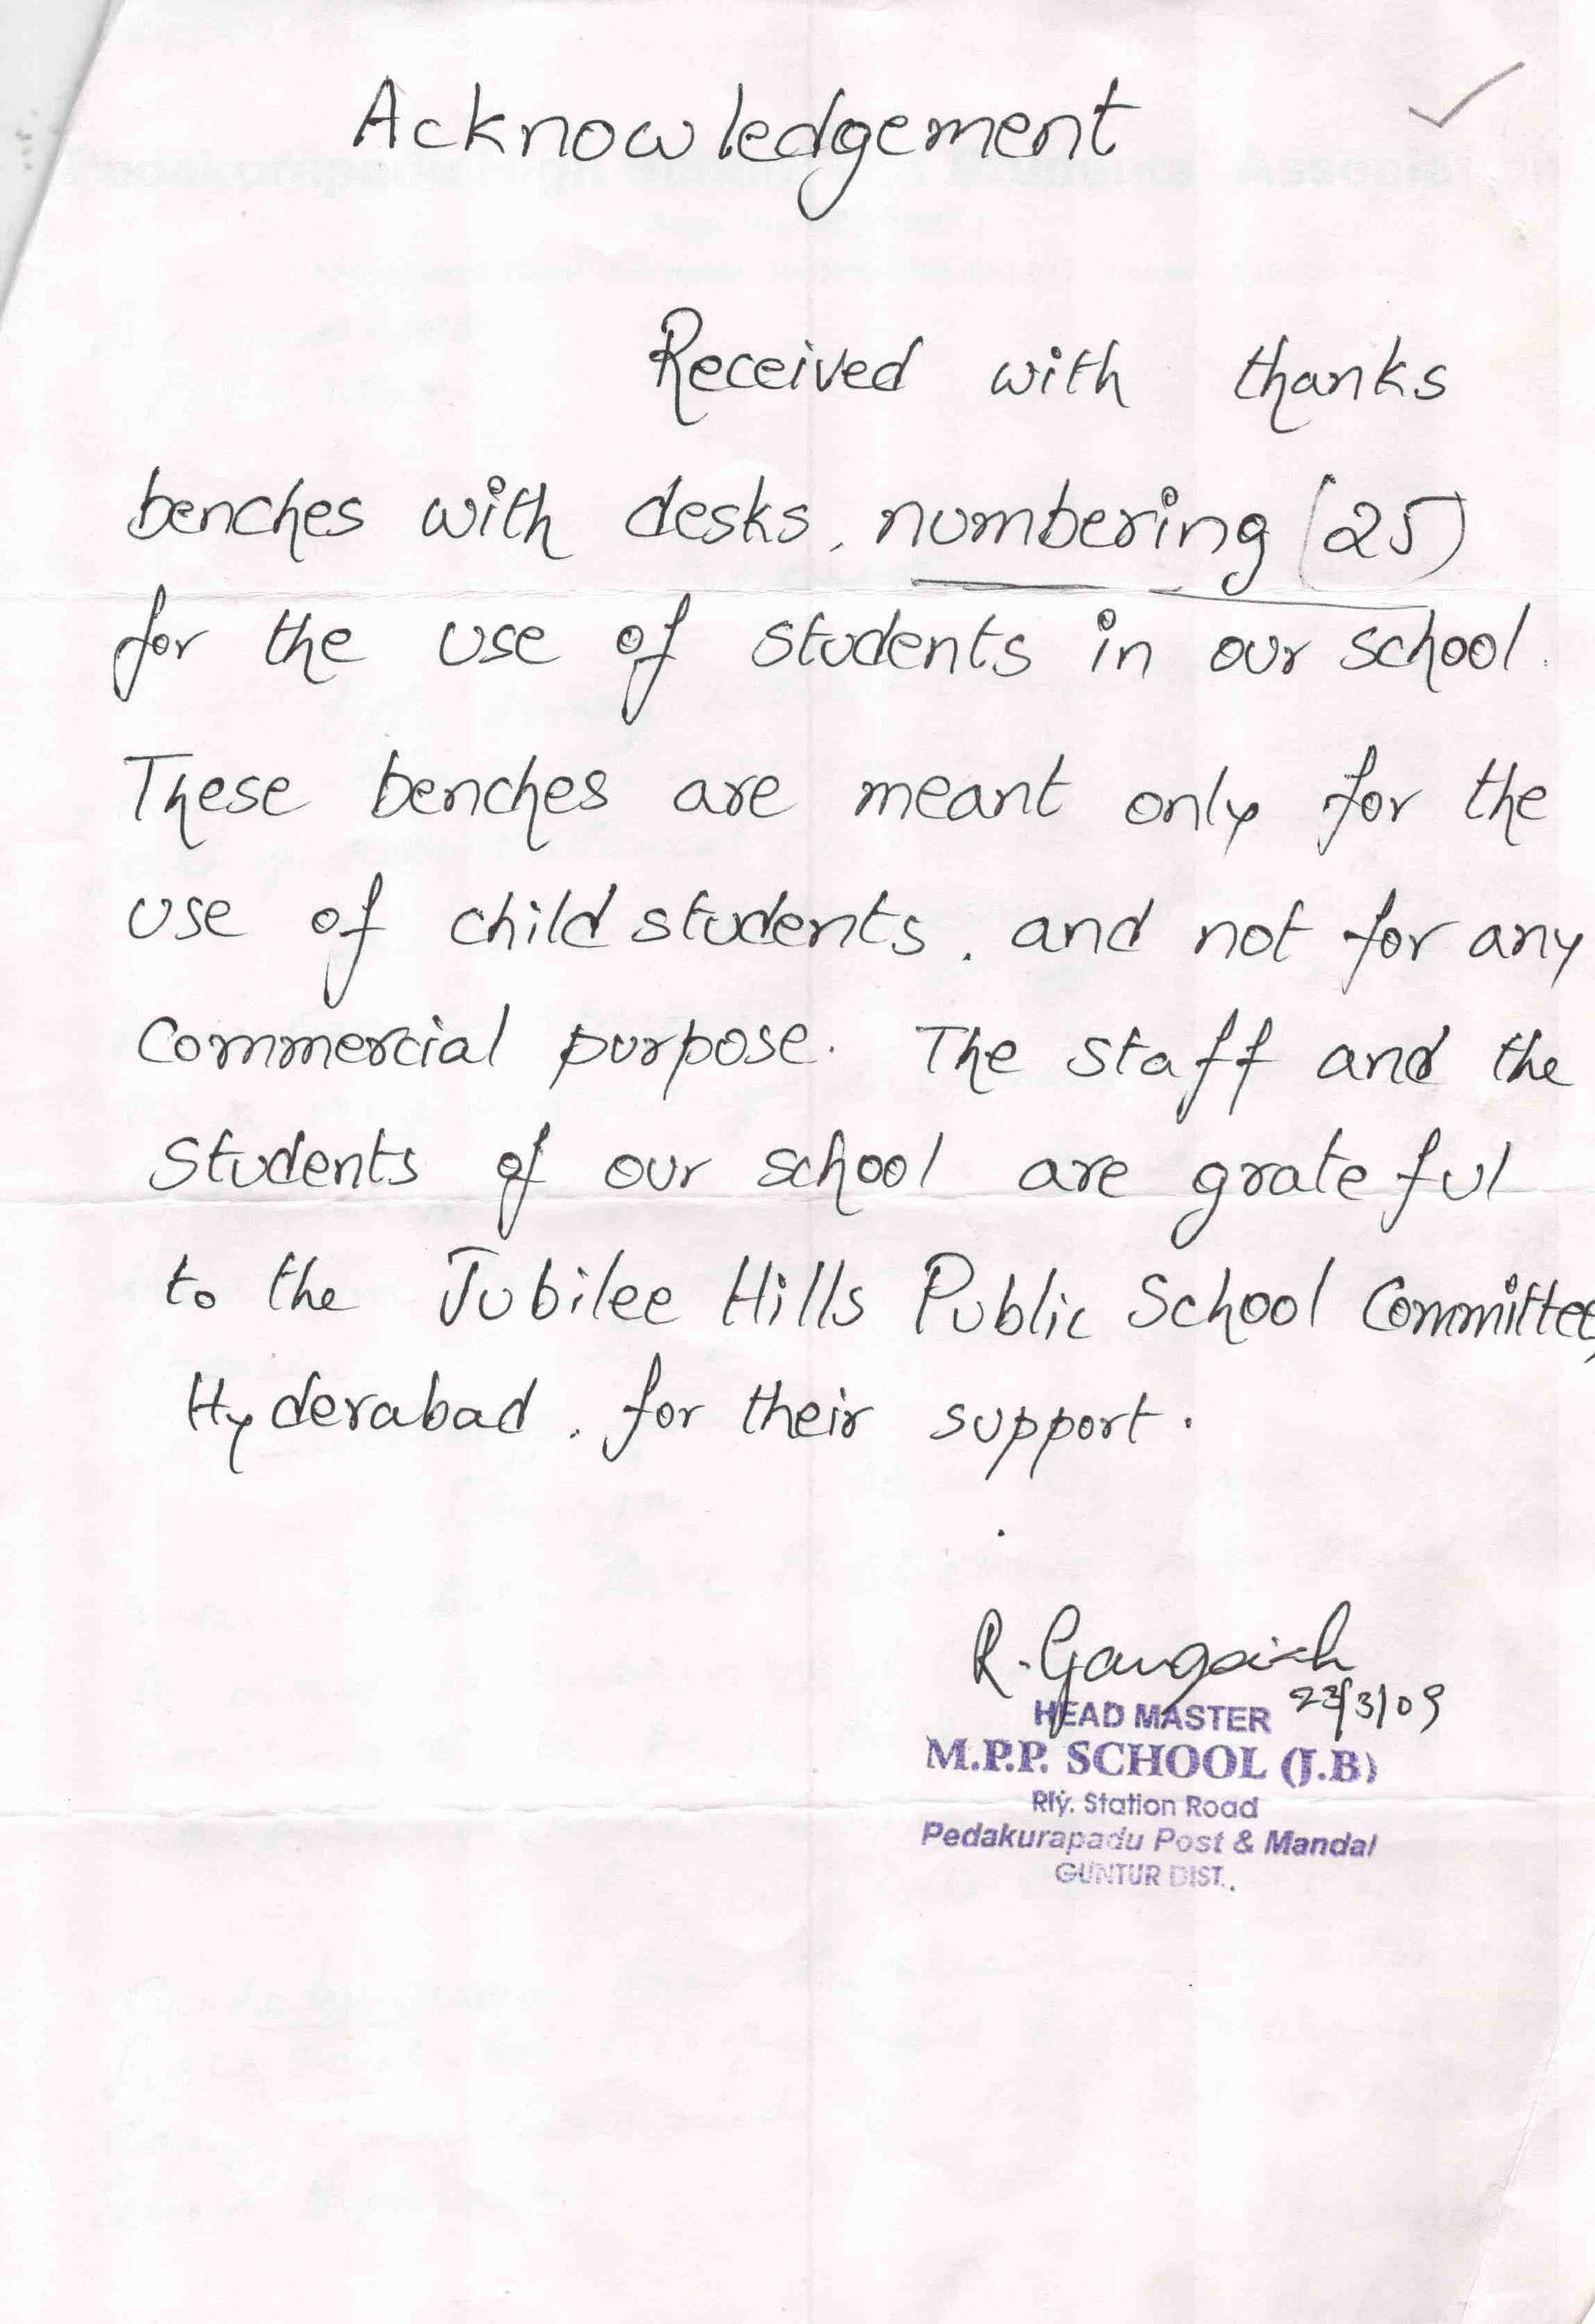 Acknowledgement
Received with thanks
benches with desks, numbering (25)
for the use of students in our school.
These benches are meant only for the
use of child students, and not for any
Commercial purpose. The staff and the
students of our school are grateful
to the Jubilee Hills Public School Committee,
Hyderabad, for their support.
R. Gangaiah
23/3/09
HEAD MASTER
M.P.P. SCHOOL (J.B)
Rly. Station Road
Pedakurapadu Post & Mandal
GUNTUR DIST.